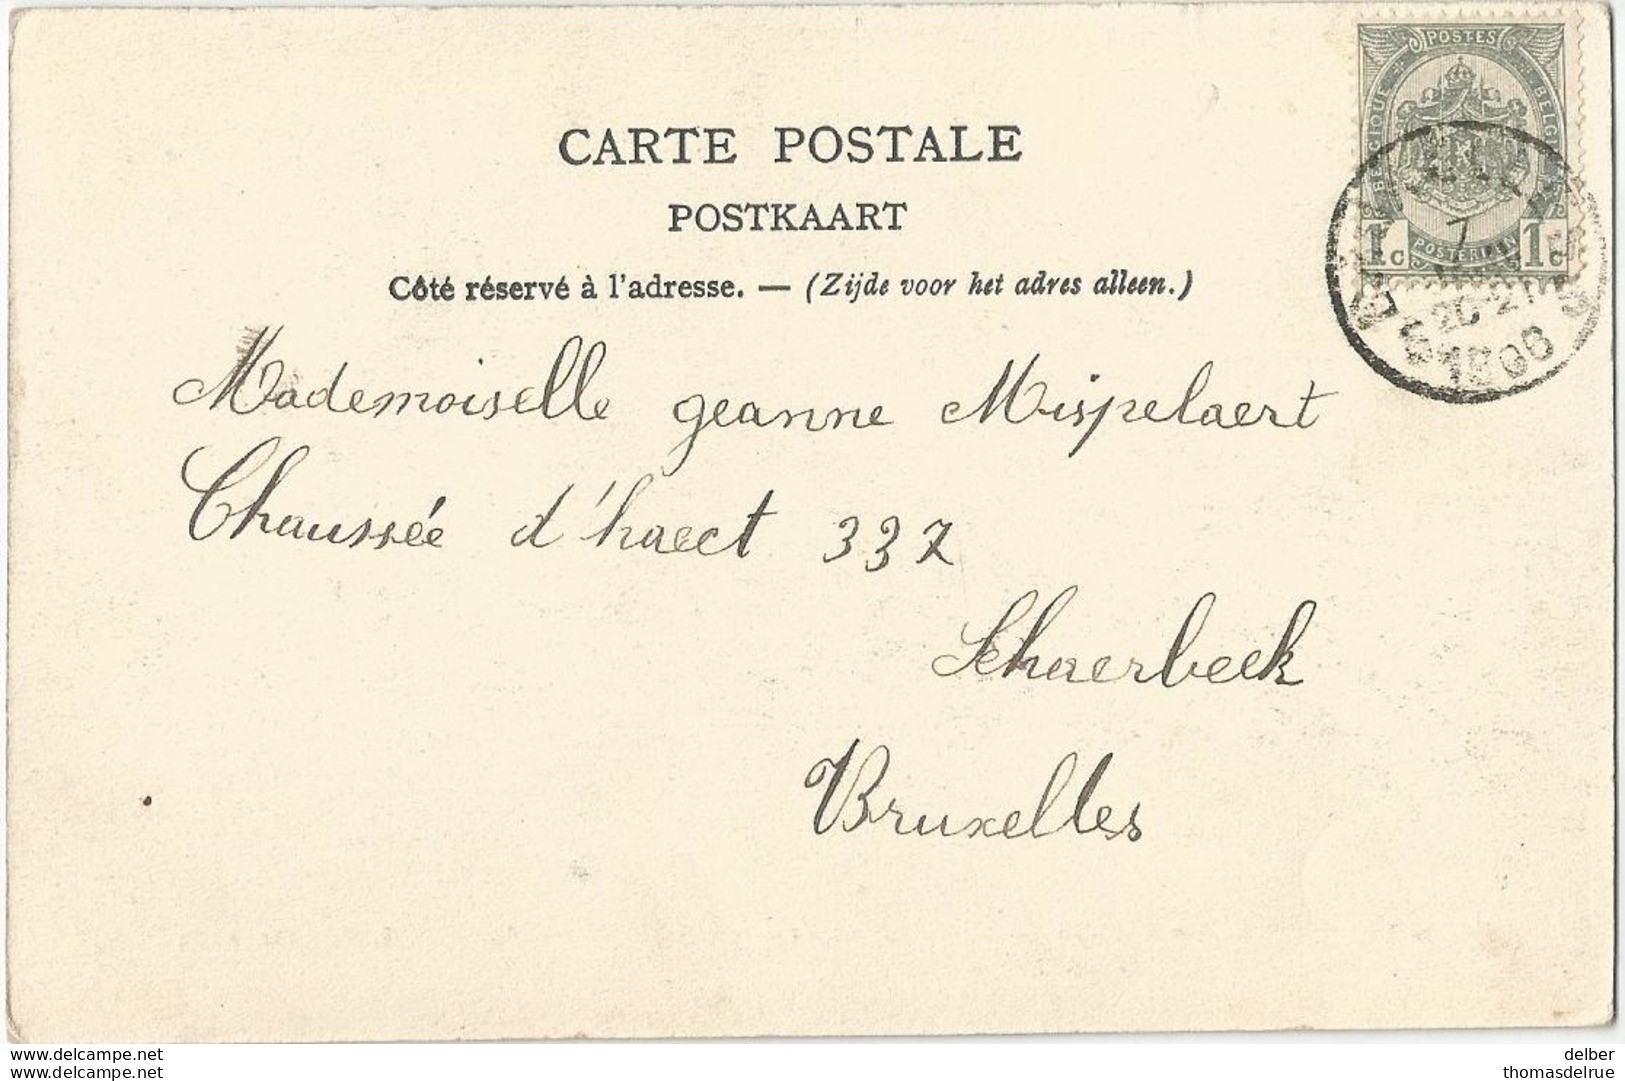 POSTES
BELGIQUE
BELGIË
1c POSTERIJEN 1c
7
20-21
CARTE POSTALE
POSTKAART
Côté réservé à l'adresse. — (Zijde voor het adres alleen.)
Mademoiselle geanne Mispelaert
Chaussée d'haect 337
Schaerbeek
Bruxelles
delber
thomasdelrue